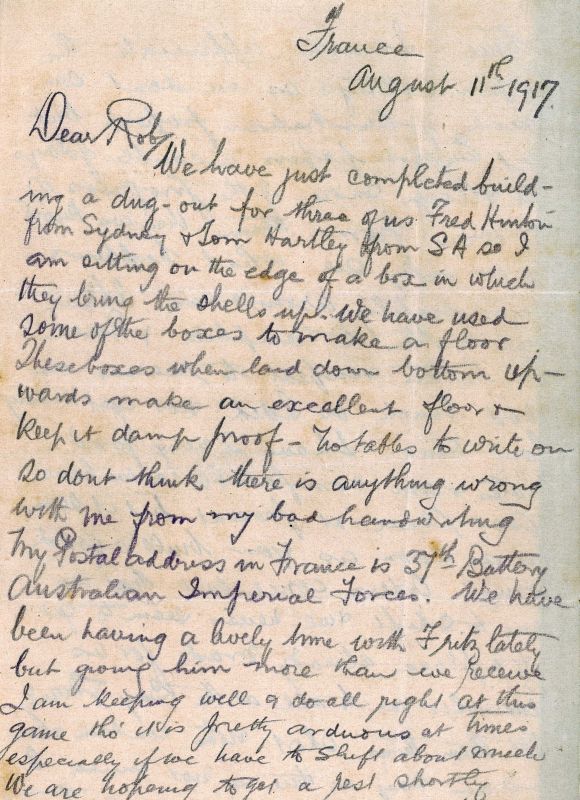 France
August 11th 1917.
Dear Rob,
We have just completed build-
ing a dug-out for three of us Fred Hinton
from Sydney & Tom Hartley from SA so I
am sitting on the edge of a box in which
they bring the shells up. We have used
some of the boxes to make a floor
These boxes when laid down bottom up-
wards make an excellent floor &
keep it damp proof - No tables to write on
so dont think there is anything wrong
with me from my bad handwriting
My Postal address in France is 37th Battery
Australian Imperial Forces. We have
been having a lively time with Fritz lately
but giving him more than we receive
I am keeping well & do all right at this
game tho' it is pretty arduous at times
especially if we have to shift about much
We are hoping to get a rest shortly